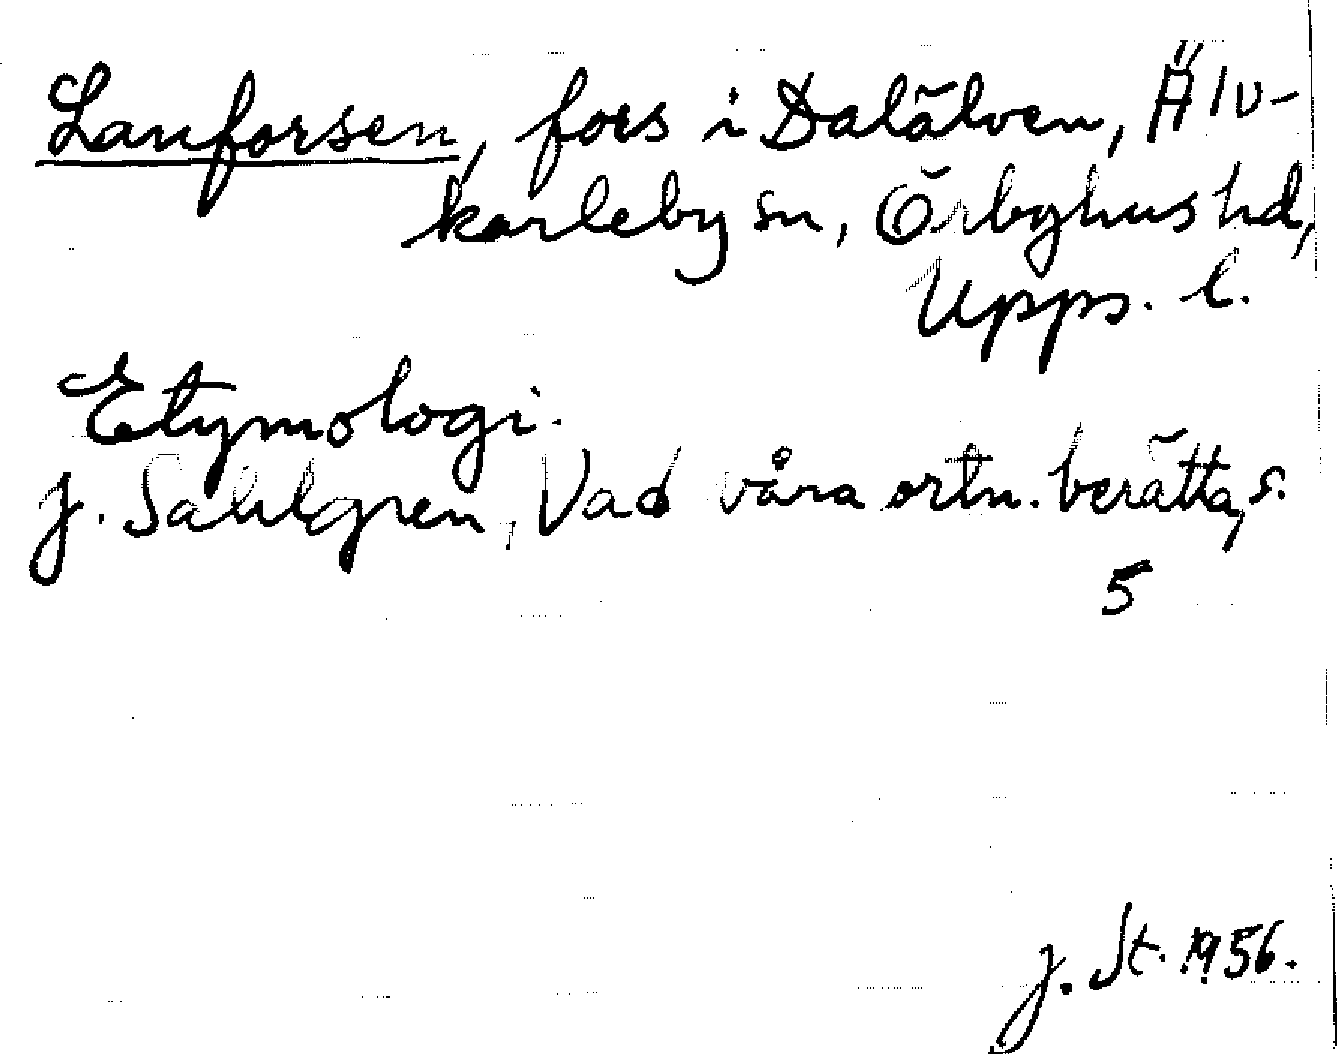 Lanforsen, fors i Dalälven, Älv-
karleby sn, Örbyhus hd,
Upps. l.
Etymologi.
J. Sahlgren, Vad våra ortn. berätta, s.
5
J. St. 1956.